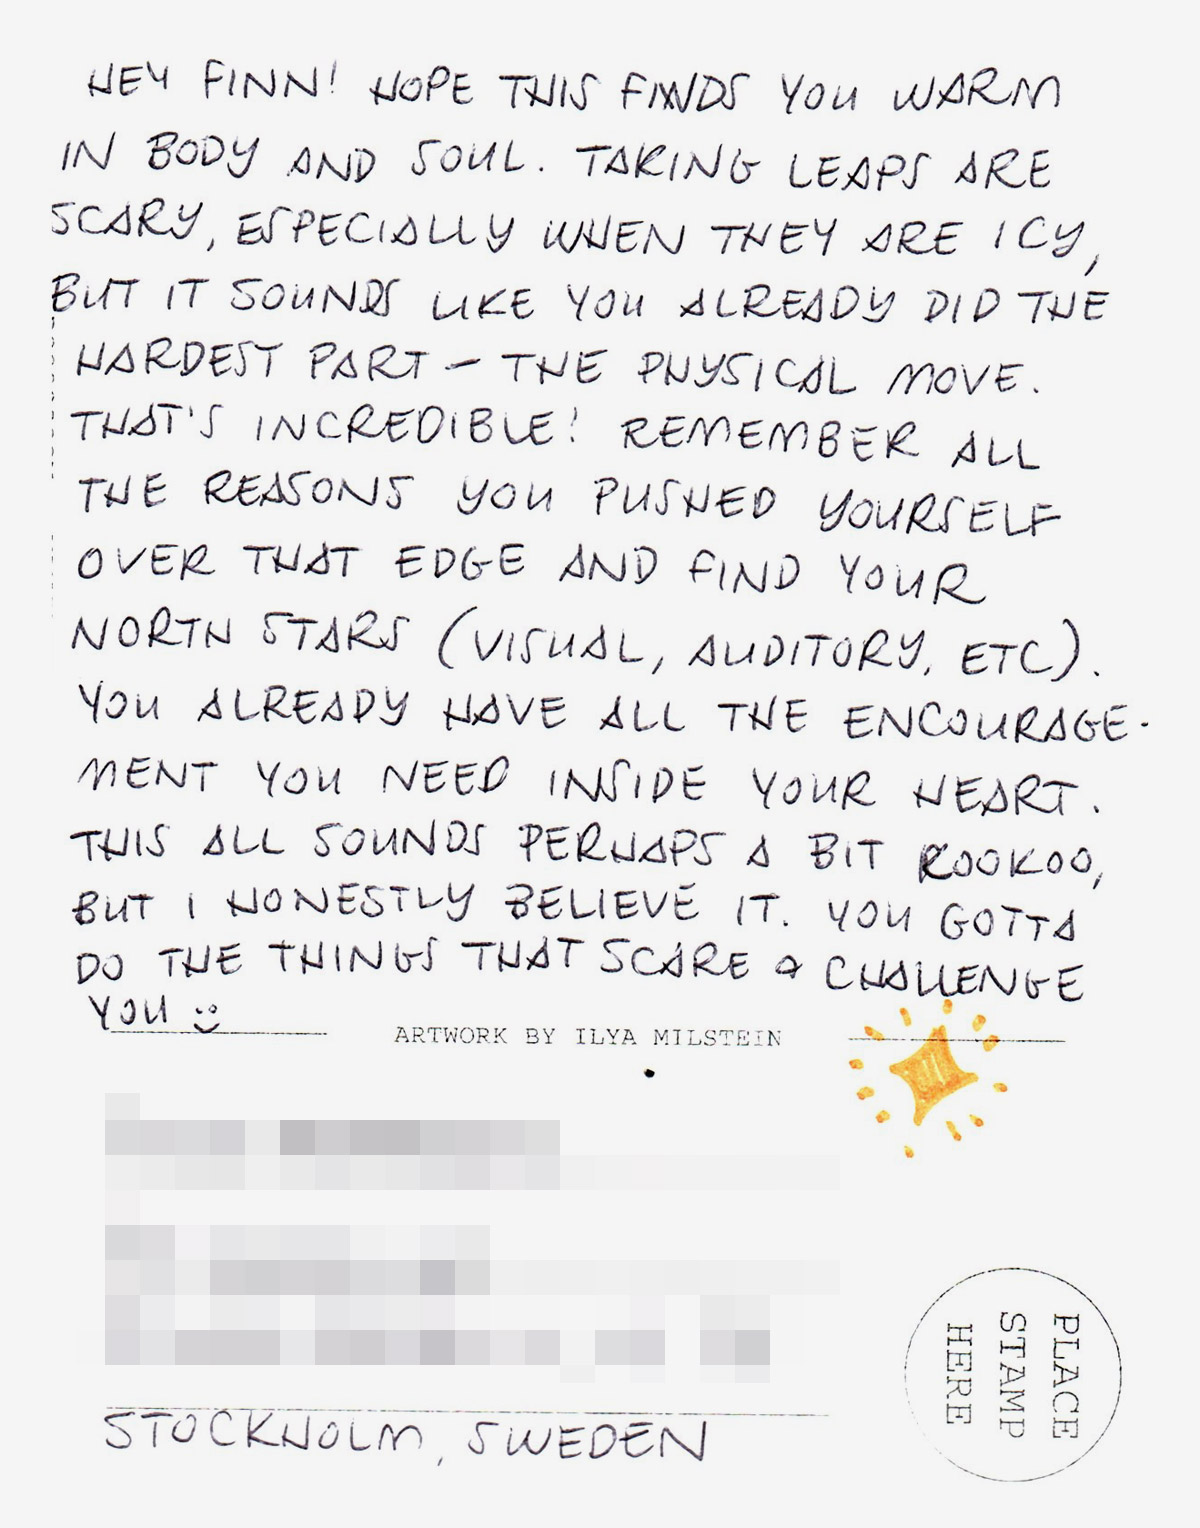 HEY FINN! HOPE THIS FINDS YOU WARM
IN BODY AND SOUL. TAKING LEAPS ARE
SCARY, ESPECIALLY WHEN THEY ARE ICY,
BUT IT SOUNDS LIKE YOU ALREADY DID THE
HARDEST PART – THE PHYSICAL MOVE.
THAT'S INCREDIBLE! REMEMBER ALL
THE REASONS YOU PUSHED YOURSELF
OVER THAT EDGE AND FIND YOUR
NORTH STARS (VISUAL, AUDITORY, ETC).
YOU ALREADY HAVE ALL THE ENCOURAGE-
MENT YOU NEED INSIDE YOUR HEART.
THIS ALL SOUNDS PERHAPS A BIT KOOKOO,
BUT I HONESTLY BELIEVE IT. YOU GOTTA
DO THE THINGS THAT SCARE & CHALLENGE
YOU :)
ARTWORK BY ILYA MILSTEIN
PLACE
STAMP
HERE
STOCKHOLM, SWEDEN